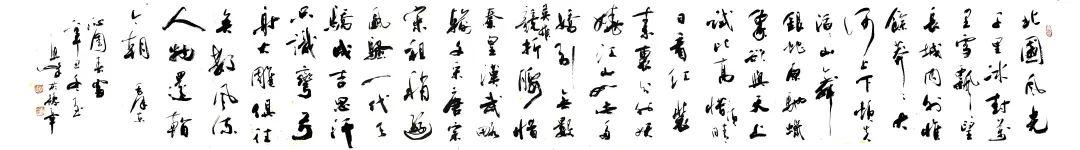 北國風光
千里冰封萬
里雪飄望
長城內外惟
餘莽莽大
河上下頓失
滔滔山舞
銀蛇原馳蠟
象欲與天公
試比高須晴
日看紅裝
素裹分外妖
嬈江山如此多
嬌引無數
英雄競折腰惜
秦皇漢武略
輸文采唐宗
宋祖稍遜
風騷一代天
驕成吉思汗
只識彎弓
射大雕俱往
矣數風流
人物還看
今朝 毛澤東
沁園春雪
辛丑冬至